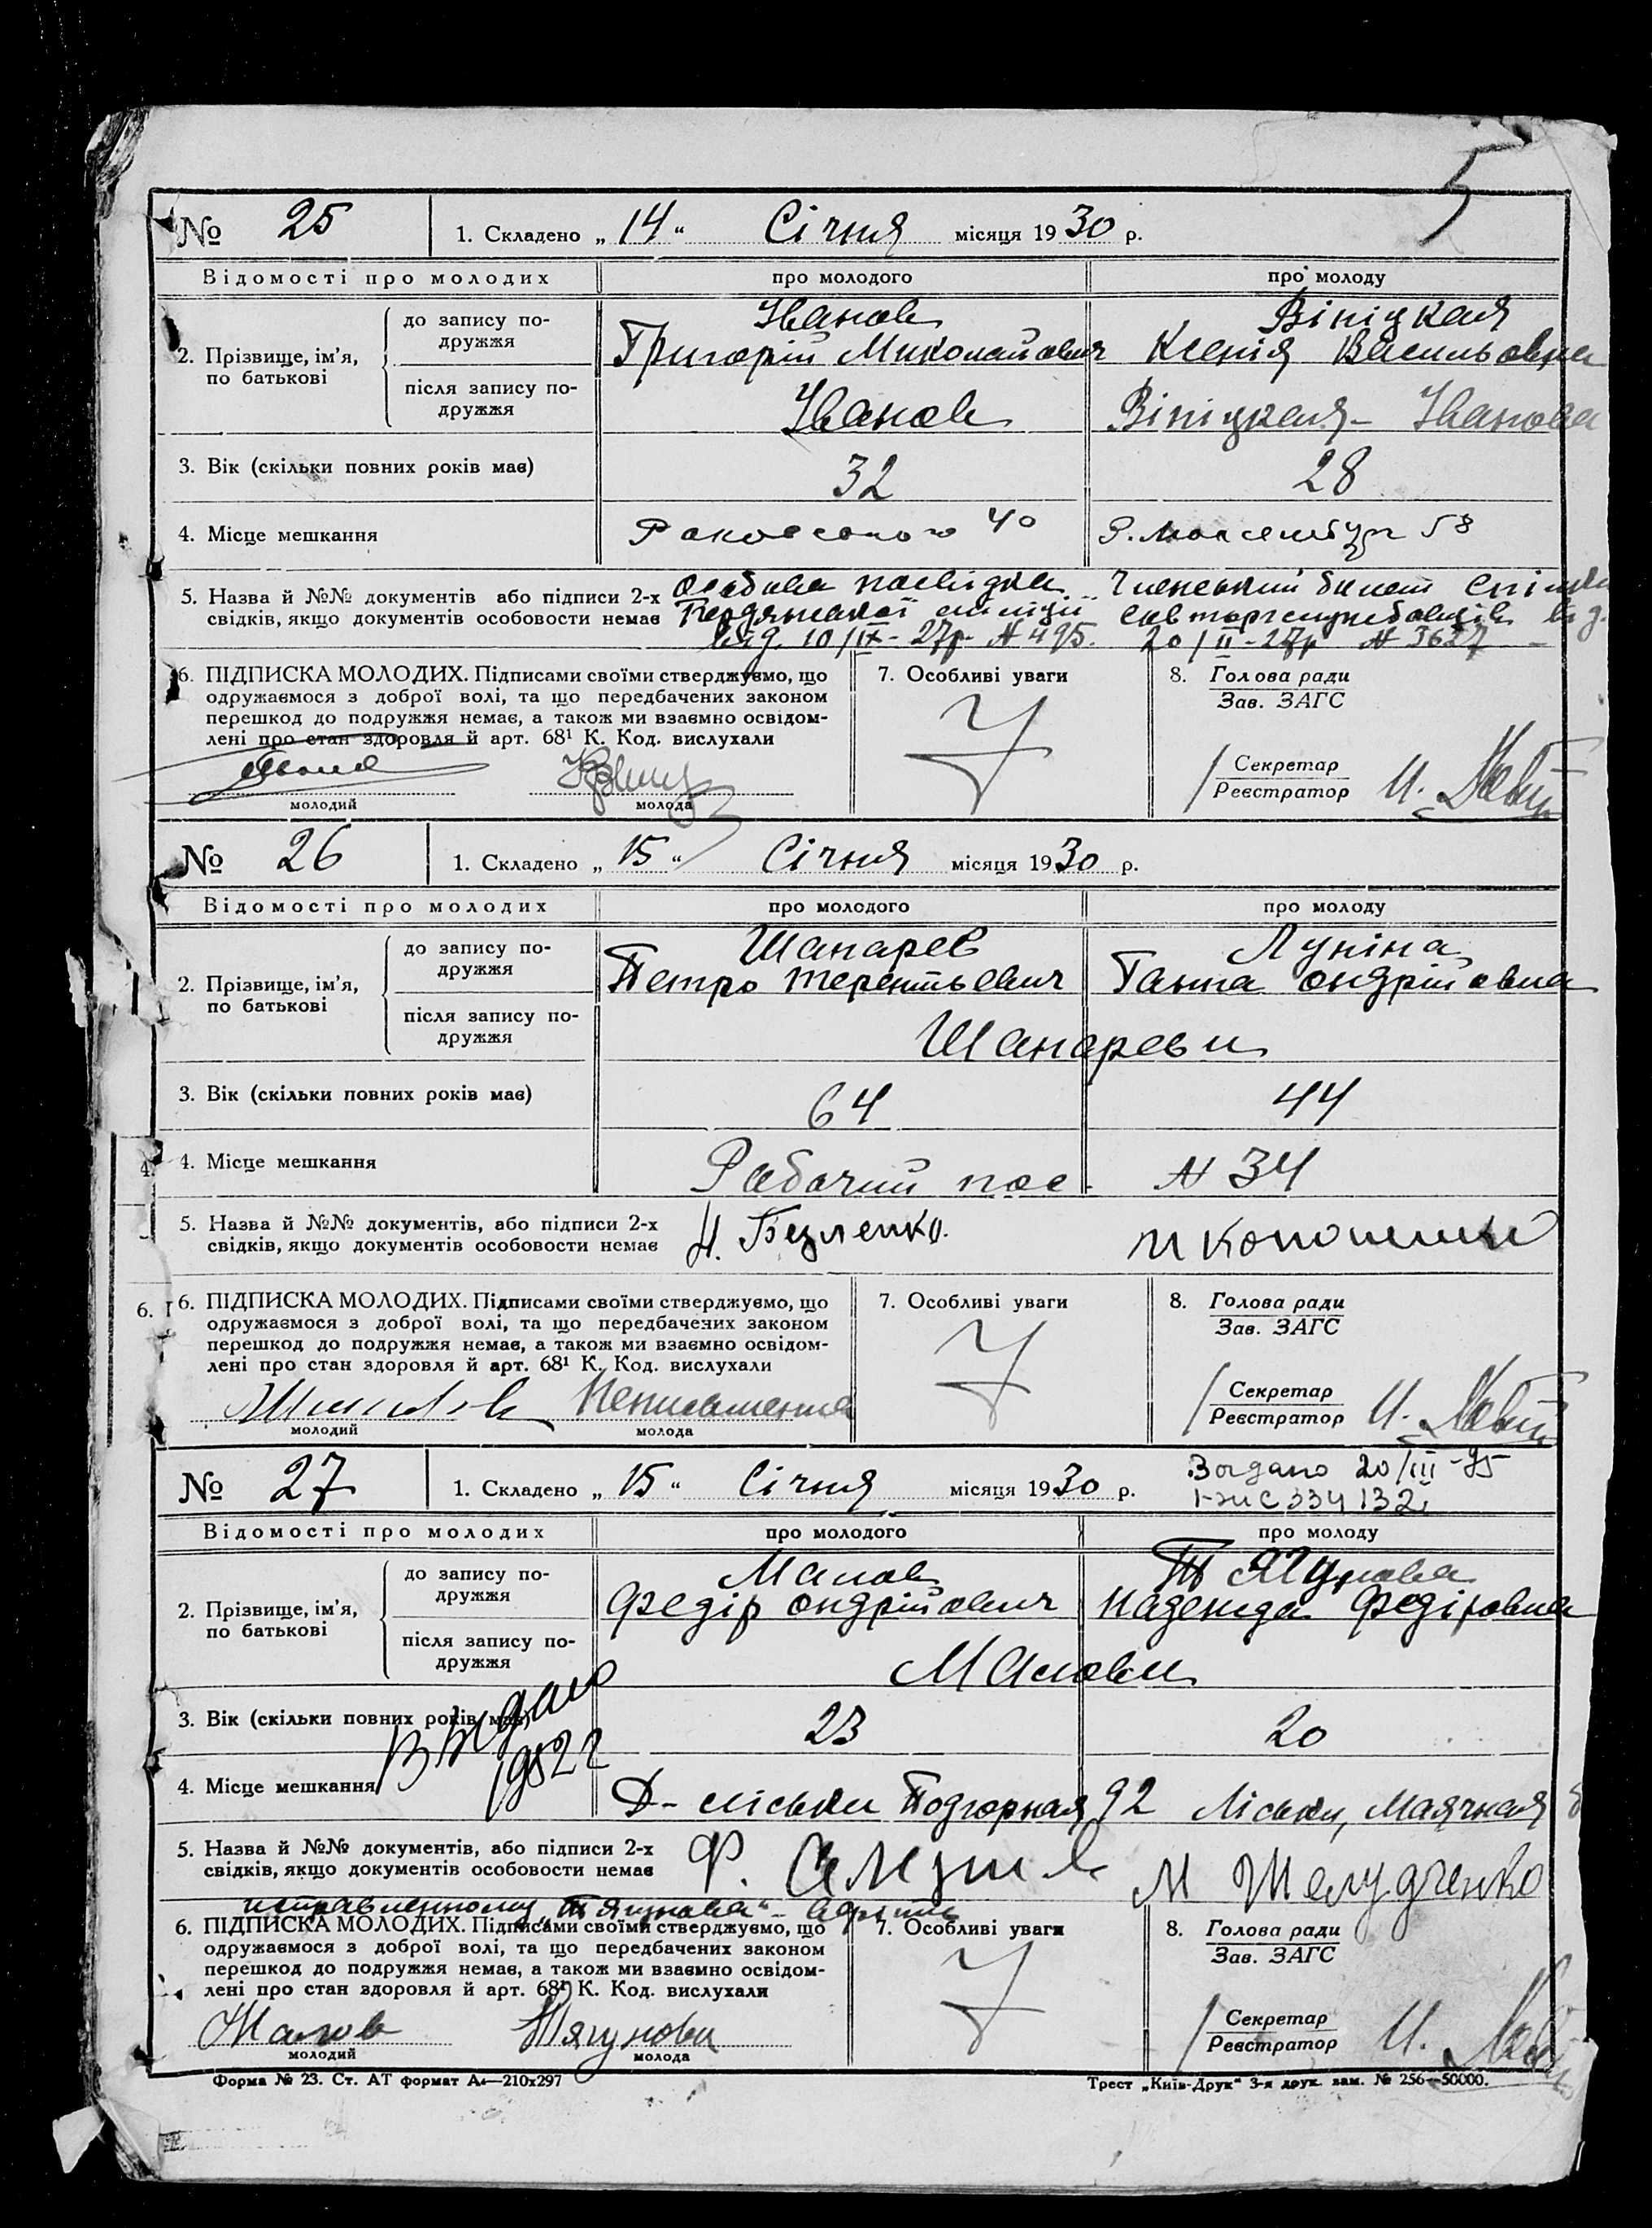 5
№ 25 1. Складено „ 14 “ Січня місяця 1930 р.
Відомості про молодих про молодого про молоду
2. Прізвище, ім’я, по батькові
до запису подружжя
Іванов Вініцкая
Григорій Миколайович Ксенія Васильовна
після запису подружжя
Іванов Вініцкая - Іванова
3. Вік (скільки повних років має) 32 28
4. Місце мешкання Раковського 40 Р. Люксембург 58
5. Назва й №№ документів або підписи 2-х Особова посвідка Членський билет спілки
свідків, якщо документів особовости немає Бердянської міліції совторгслужбовців від
від 10/IX - 27р. № 495. 20/II - 27р № 3637
6. ПІДПИСКА МОЛОДИХ. Підписами своїми стверджуємо, що 7. Особливі уваги 8. Голова ради
одружаємося з доброї волі, та що передбачених законом Зав. ЗАГС
перешкод до подружжя немає, а також ми взаємно освідом-
лені про стан здоровля й арт. 68¹ К. Код. вислухали
Секретар
Реєстратор И.
молодий молода
№ 26 1. Складено „ 15 “ Січня місяця 1930 р.
Відомості про молодих про молодого про молоду
2. Прізвище, ім’я, по батькові
до запису подружжя
Шапарев Луніна
Петро Терентьевич Ганна Ондрійовна
після запису подружжя
Шапареви
3. Вік (скільки повних років має) 64 44
4. Місце мешкання Рабочий пос. № 34
5. Назва й №№ документів, або підписи 2-х
свідків, якщо документів особовости немає
6. ПІДПИСКА МОЛОДИХ. Підписами своїми стверджуємо, що 7. Особливі уваги 8. Голова ради
одружаємося з доброї волі, та що передбачених законом Зав. ЗАГС
перешкод до подружжя немає, а також ми взаємно освідом-
лені про стан здоровля й арт. 68¹ К. Код. вислухали
Секретар
Неписьменна Реєстратор И.
молодий молода
№ 27 1. Складено „ 15 “ Січня місяця 1930 р.
20/III - 75
334132
Відомості про молодих про молодого про молоду
2. Прізвище, ім’я, по батькові
до запису подружжя
Малов Тягунова
Федір Ондрійович Надежда Федіровна
після запису подружжя
Малови
3. Вік (скільки повних років має) 23 20
Видано
1952 г
4. Місце мешкання Д- Ліськи Подгорная 92 Ліськи, Маячная
5. Назва й №№ документів, або підписи 2-х
свідків, якщо документів особовости немає М Шелудченко
исправленному „Тягунова“ - верить
6. ПІДПИСКА МОЛОДИХ. Підписами своїми стверджуємо, що 7. Особливі уваги 8. Голова ради
одружаємося з доброї волі, та що передбачених законом Зав. ЗАГС
перешкод до подружжя немає, а також ми взаємно освідом-
лені про стан здоровля й арт. 68¹ К. Код. вислухали
Секретар
Малов Тягунова Реєстратор И.
молодий молода
Форма № 23. Ст. АТ формат А₄—210x297 Трест „Київ-Друк“ 3-я друк. зам. № 256—50000.